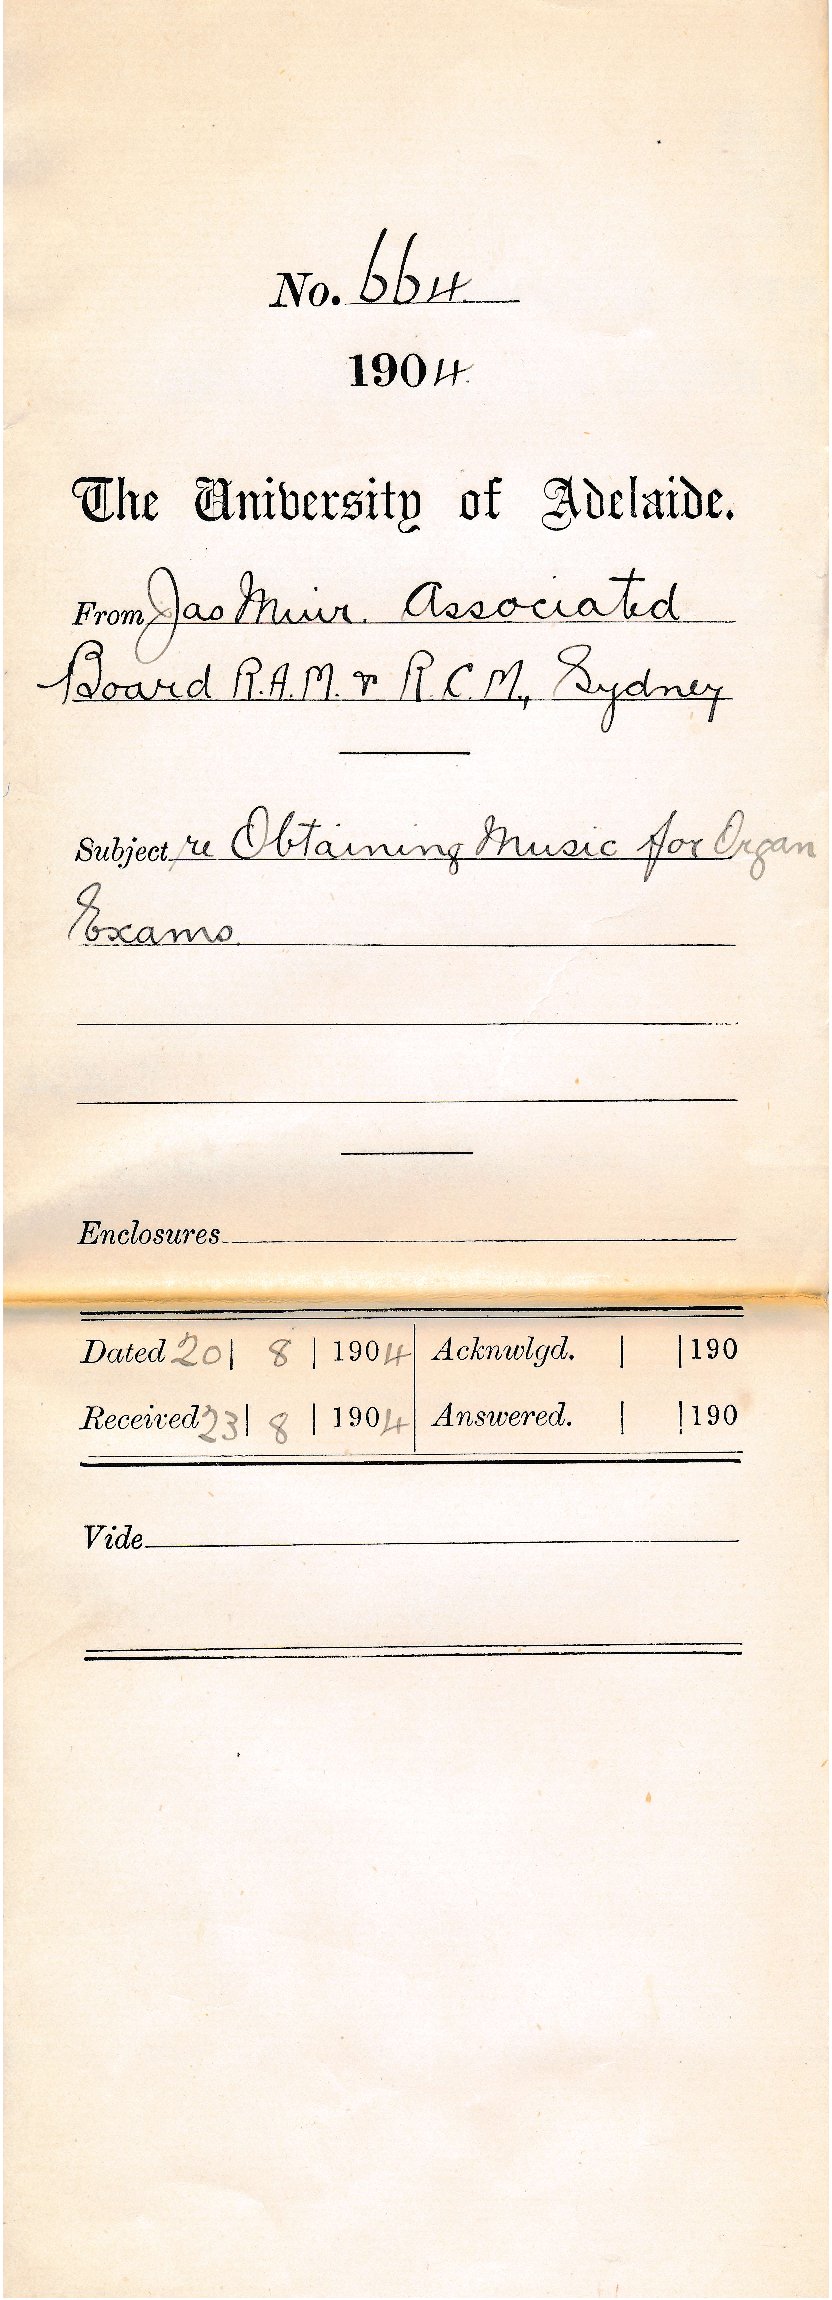 No. 664
1904.
The University of Adelaide.
From Jas Muir. Associated
Board R.A.M. & R.C.M., Sydney
Subject re Obtaining Music for Organ
Exams.
Enclosures
Dated 20 | 8 | 1904 Acknwlgd. | | 190
Received 23 | 8 | 1904 Answered. | | 190
Vide